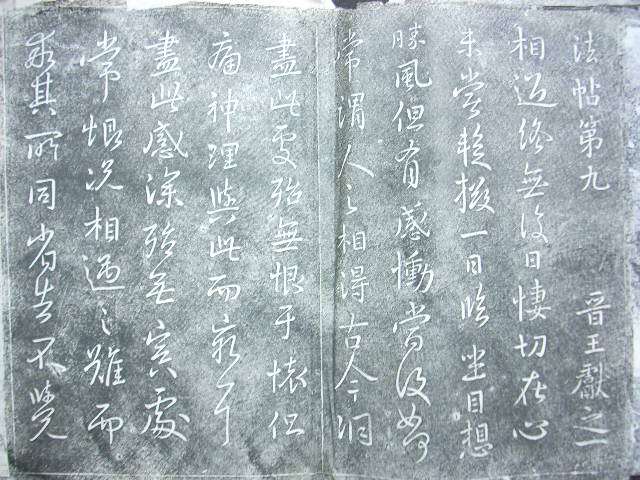 法帖第九 晋王獻之一
相過終無復日悽切在心
未嘗蹔掇一日臨坐目想
勝風但有感慟當復如何
常謂人之相得古今洞
盡此處殆無恨于懷但
痛神理與此而窮耳
盡此感深殆無冥處
常恨況相遇之難而
乖其所同省告不覺